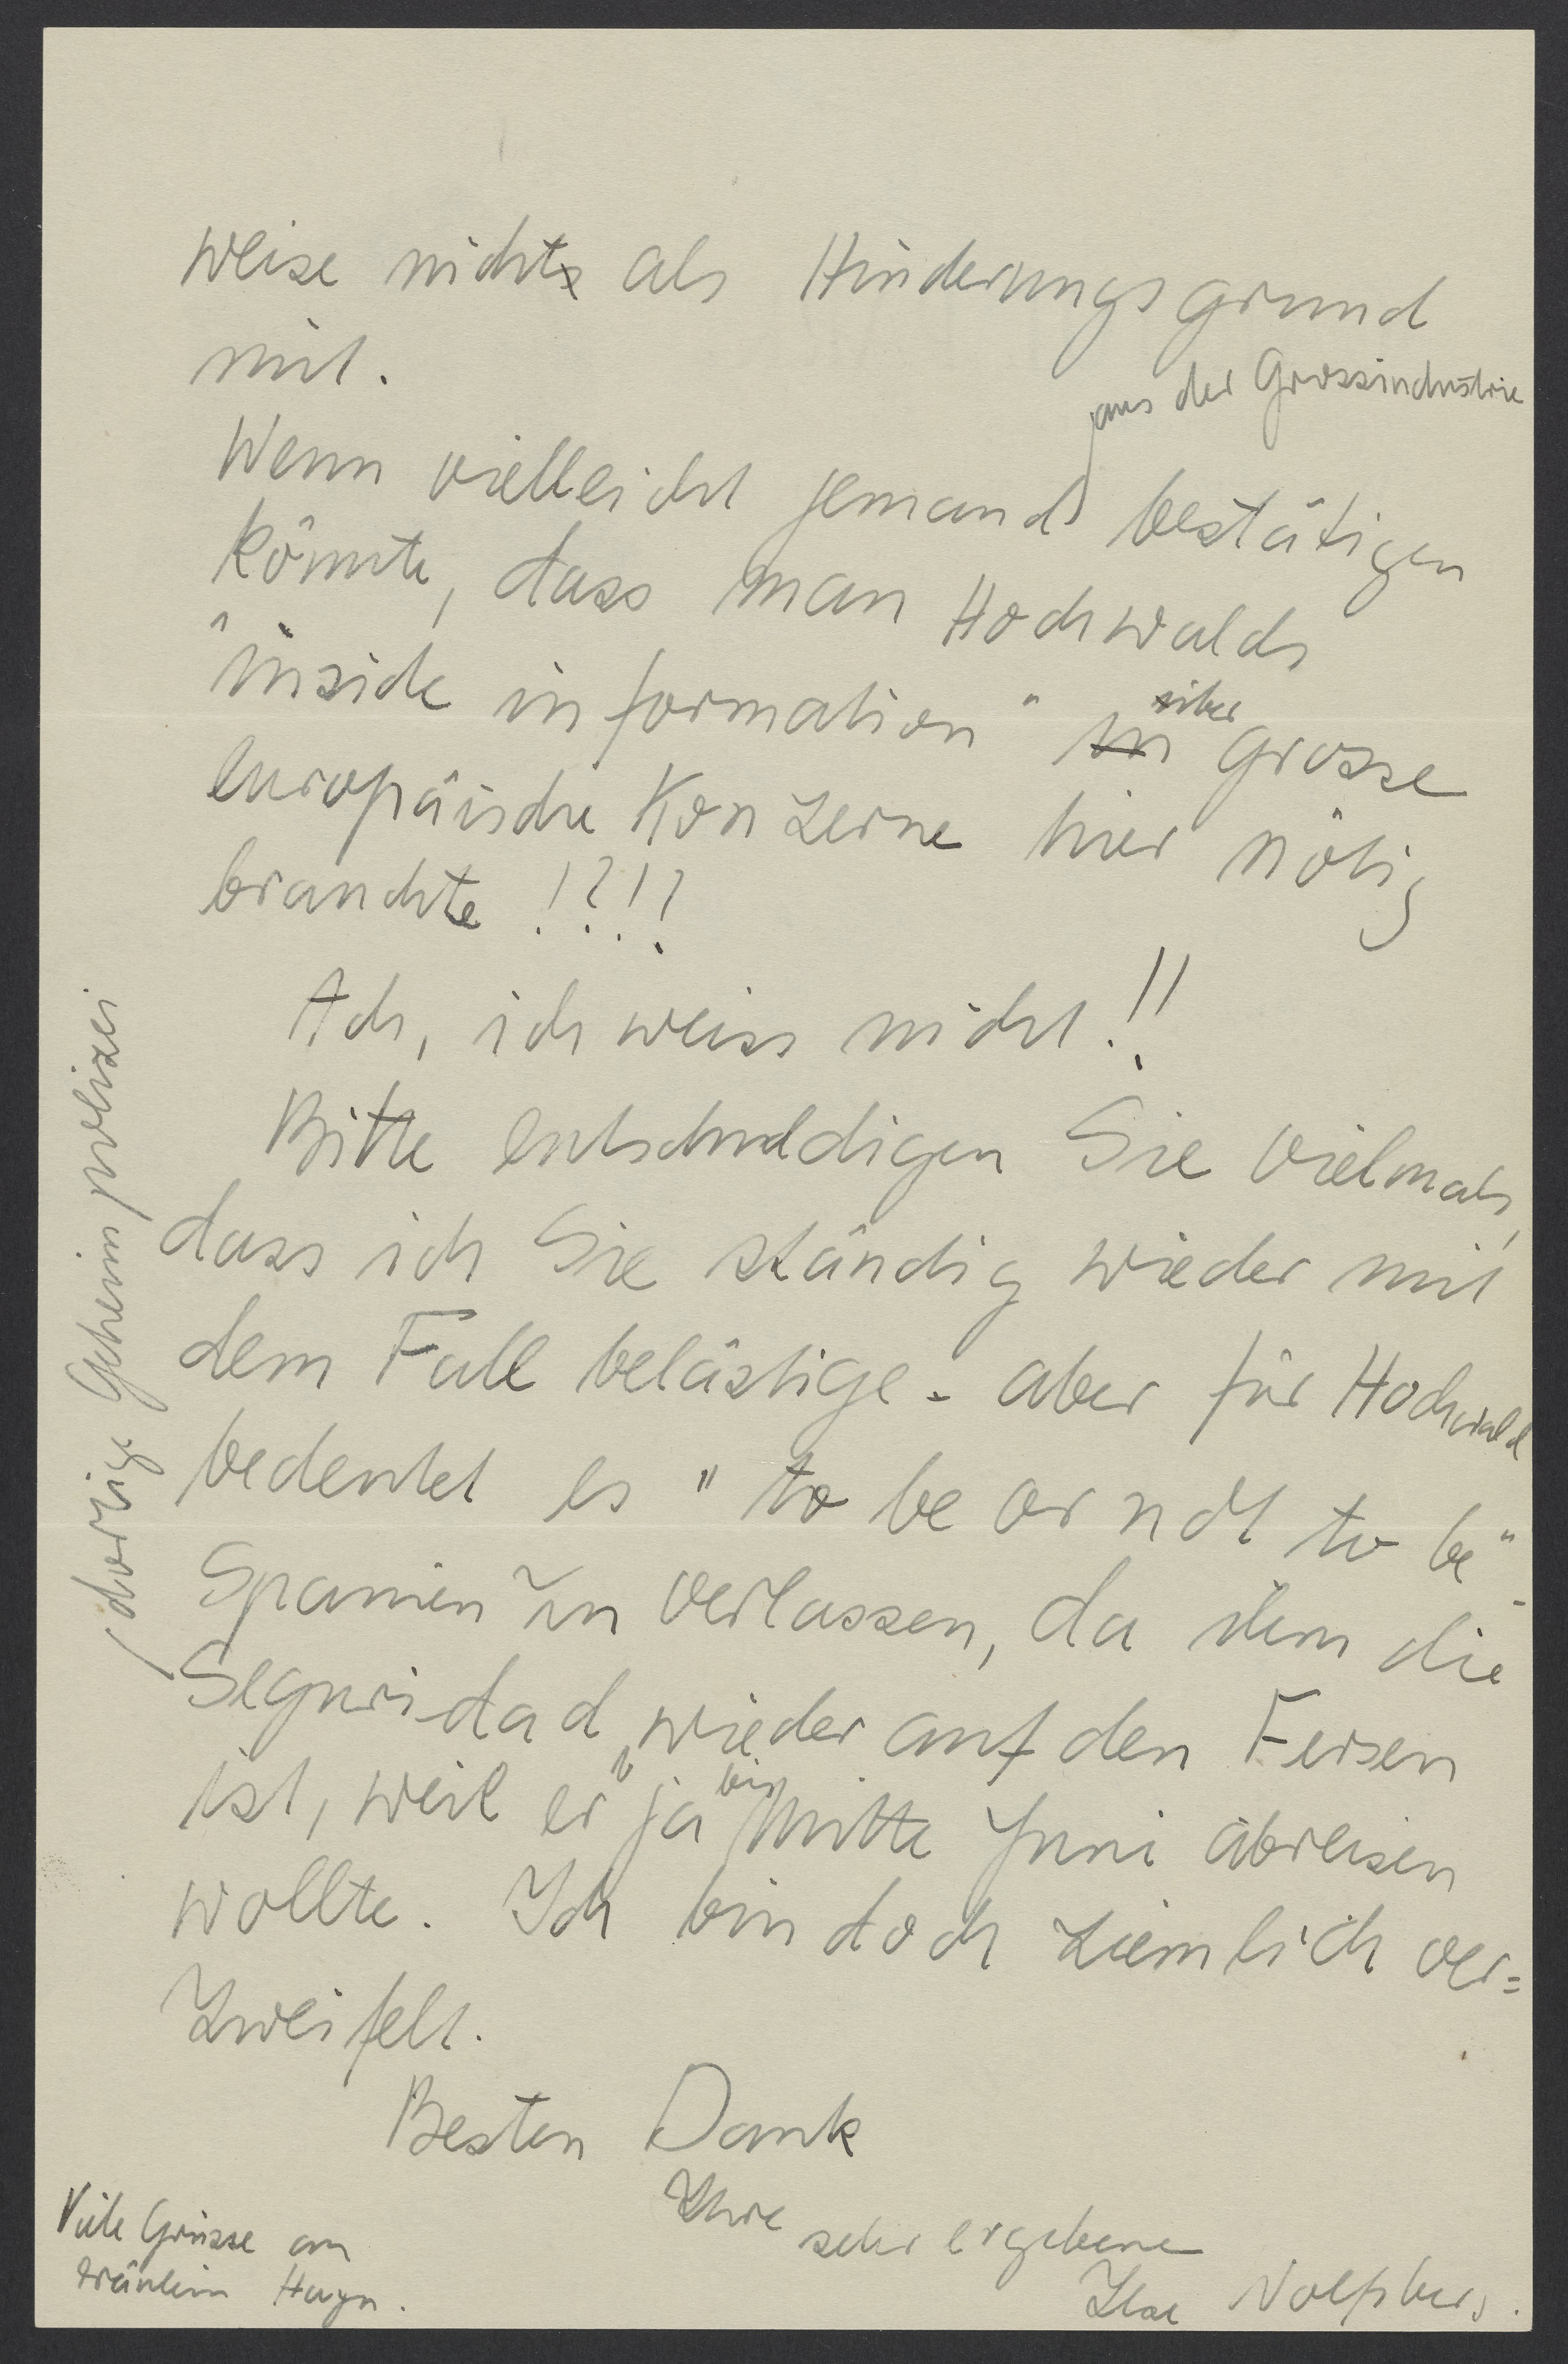 weise nicht als Hinderungsgrund
mit.
aus der Grossindustrie
Wenn vielleicht jemand bestätigen
könnte, dass man Hochwalds
"inside information" in über grosse
europäische Konzerne hier nötig
brauchte !?!?
Ach, ich weiss nicht!!
Bitte entschuldigen Sie vielmals,
dass ich Sie ständig wieder mit
dem Fall belästige - aber für Hochwald
bedeutet es "to be or not to be"
Spanien zu verlassen, da ihm die
Seguridad wieder auf den Fersen
ist, weil er ja bis Mitte Juni abreisen
wollte. Ich bin doch ziemlich ver=
zweifelt.
Besten Dank
Ihre sehr ergebene
Ilse Wolfsberg.
Viele Grüsse an
Fräulein
dortige Geheimpolizei